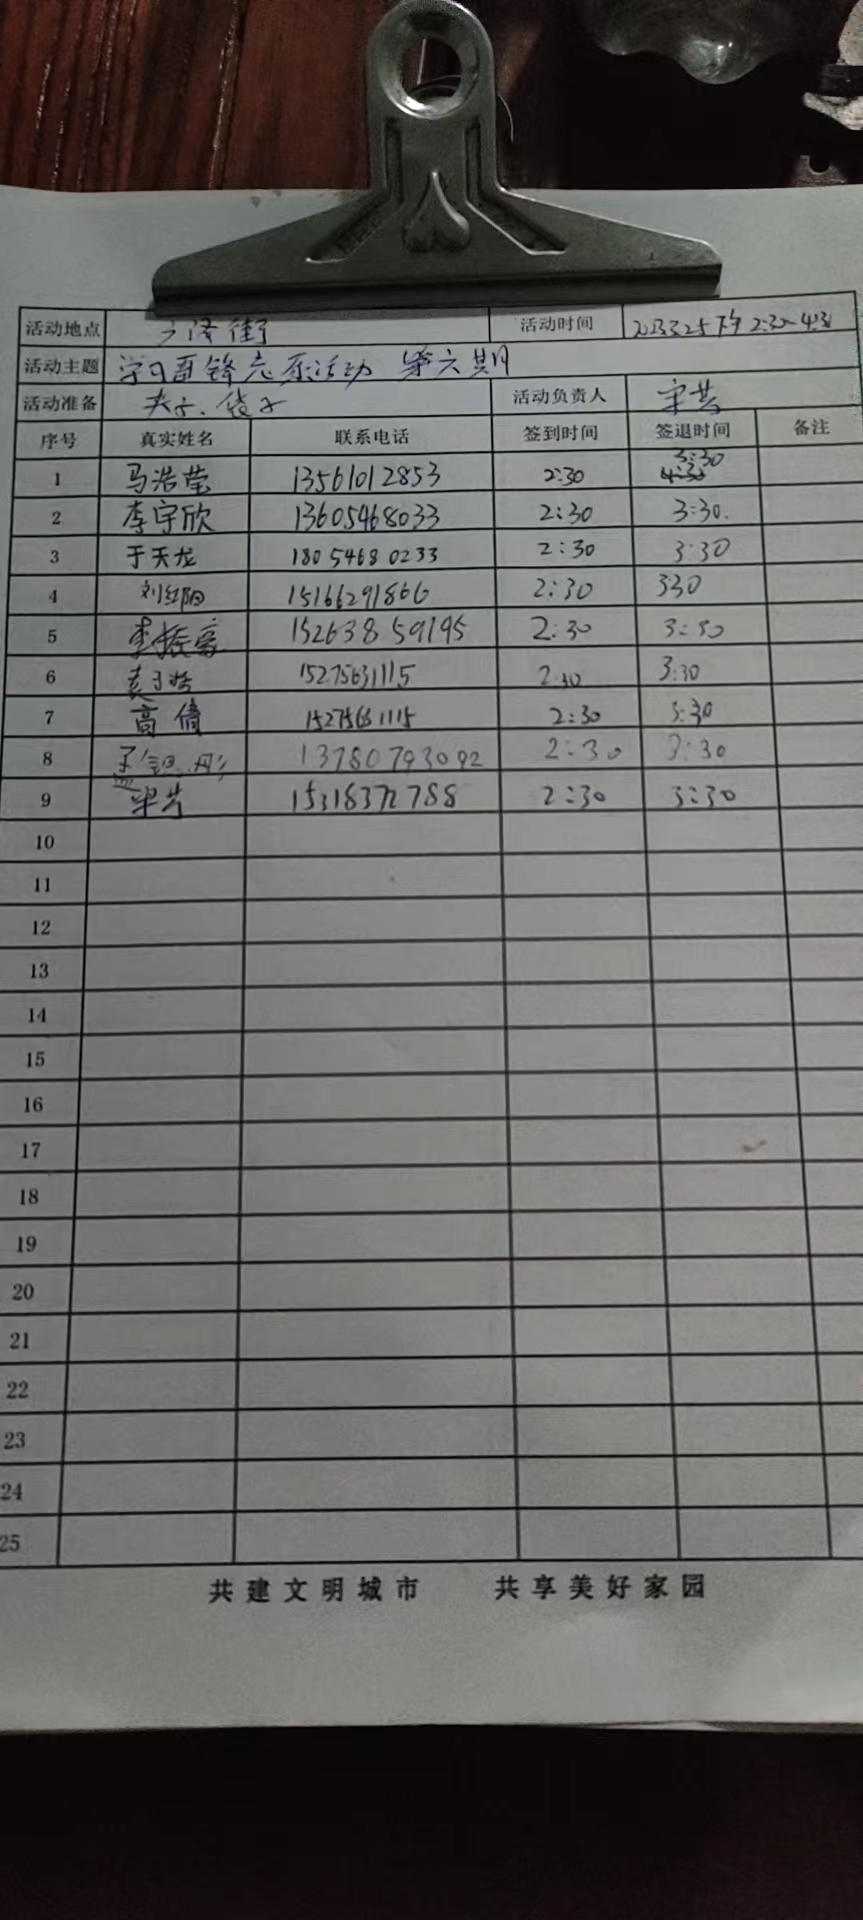 活动地点 街 活动时间 2023325下午2:30-4:30
活动主题 学习雷锋志愿活动 第六期
活动准备 夹子、袋子 活动负责人
序号 真实姓名 联系电话 签到时间 签退时间 备注
1 马浩莹 13561012853 2:30 4:30 3:30
2 李宇欣 13605468033 2:30 3:30.
3 于天龙 18054680233 2:30 3:30
4 刘红阳 15166291866 2:30 330
5 李振豪 15263859195 2:30 3:30
6 15275631115 2:30 3:30
7 高倩 15275631115 2:30 3:30
8 13780793092 2:30 3:30
9 15318372788 2:30 3:30
10
11
12
13
14
15
16
17
18
19
20
21
22
23
24
25
共建文明城市 共享美好家园